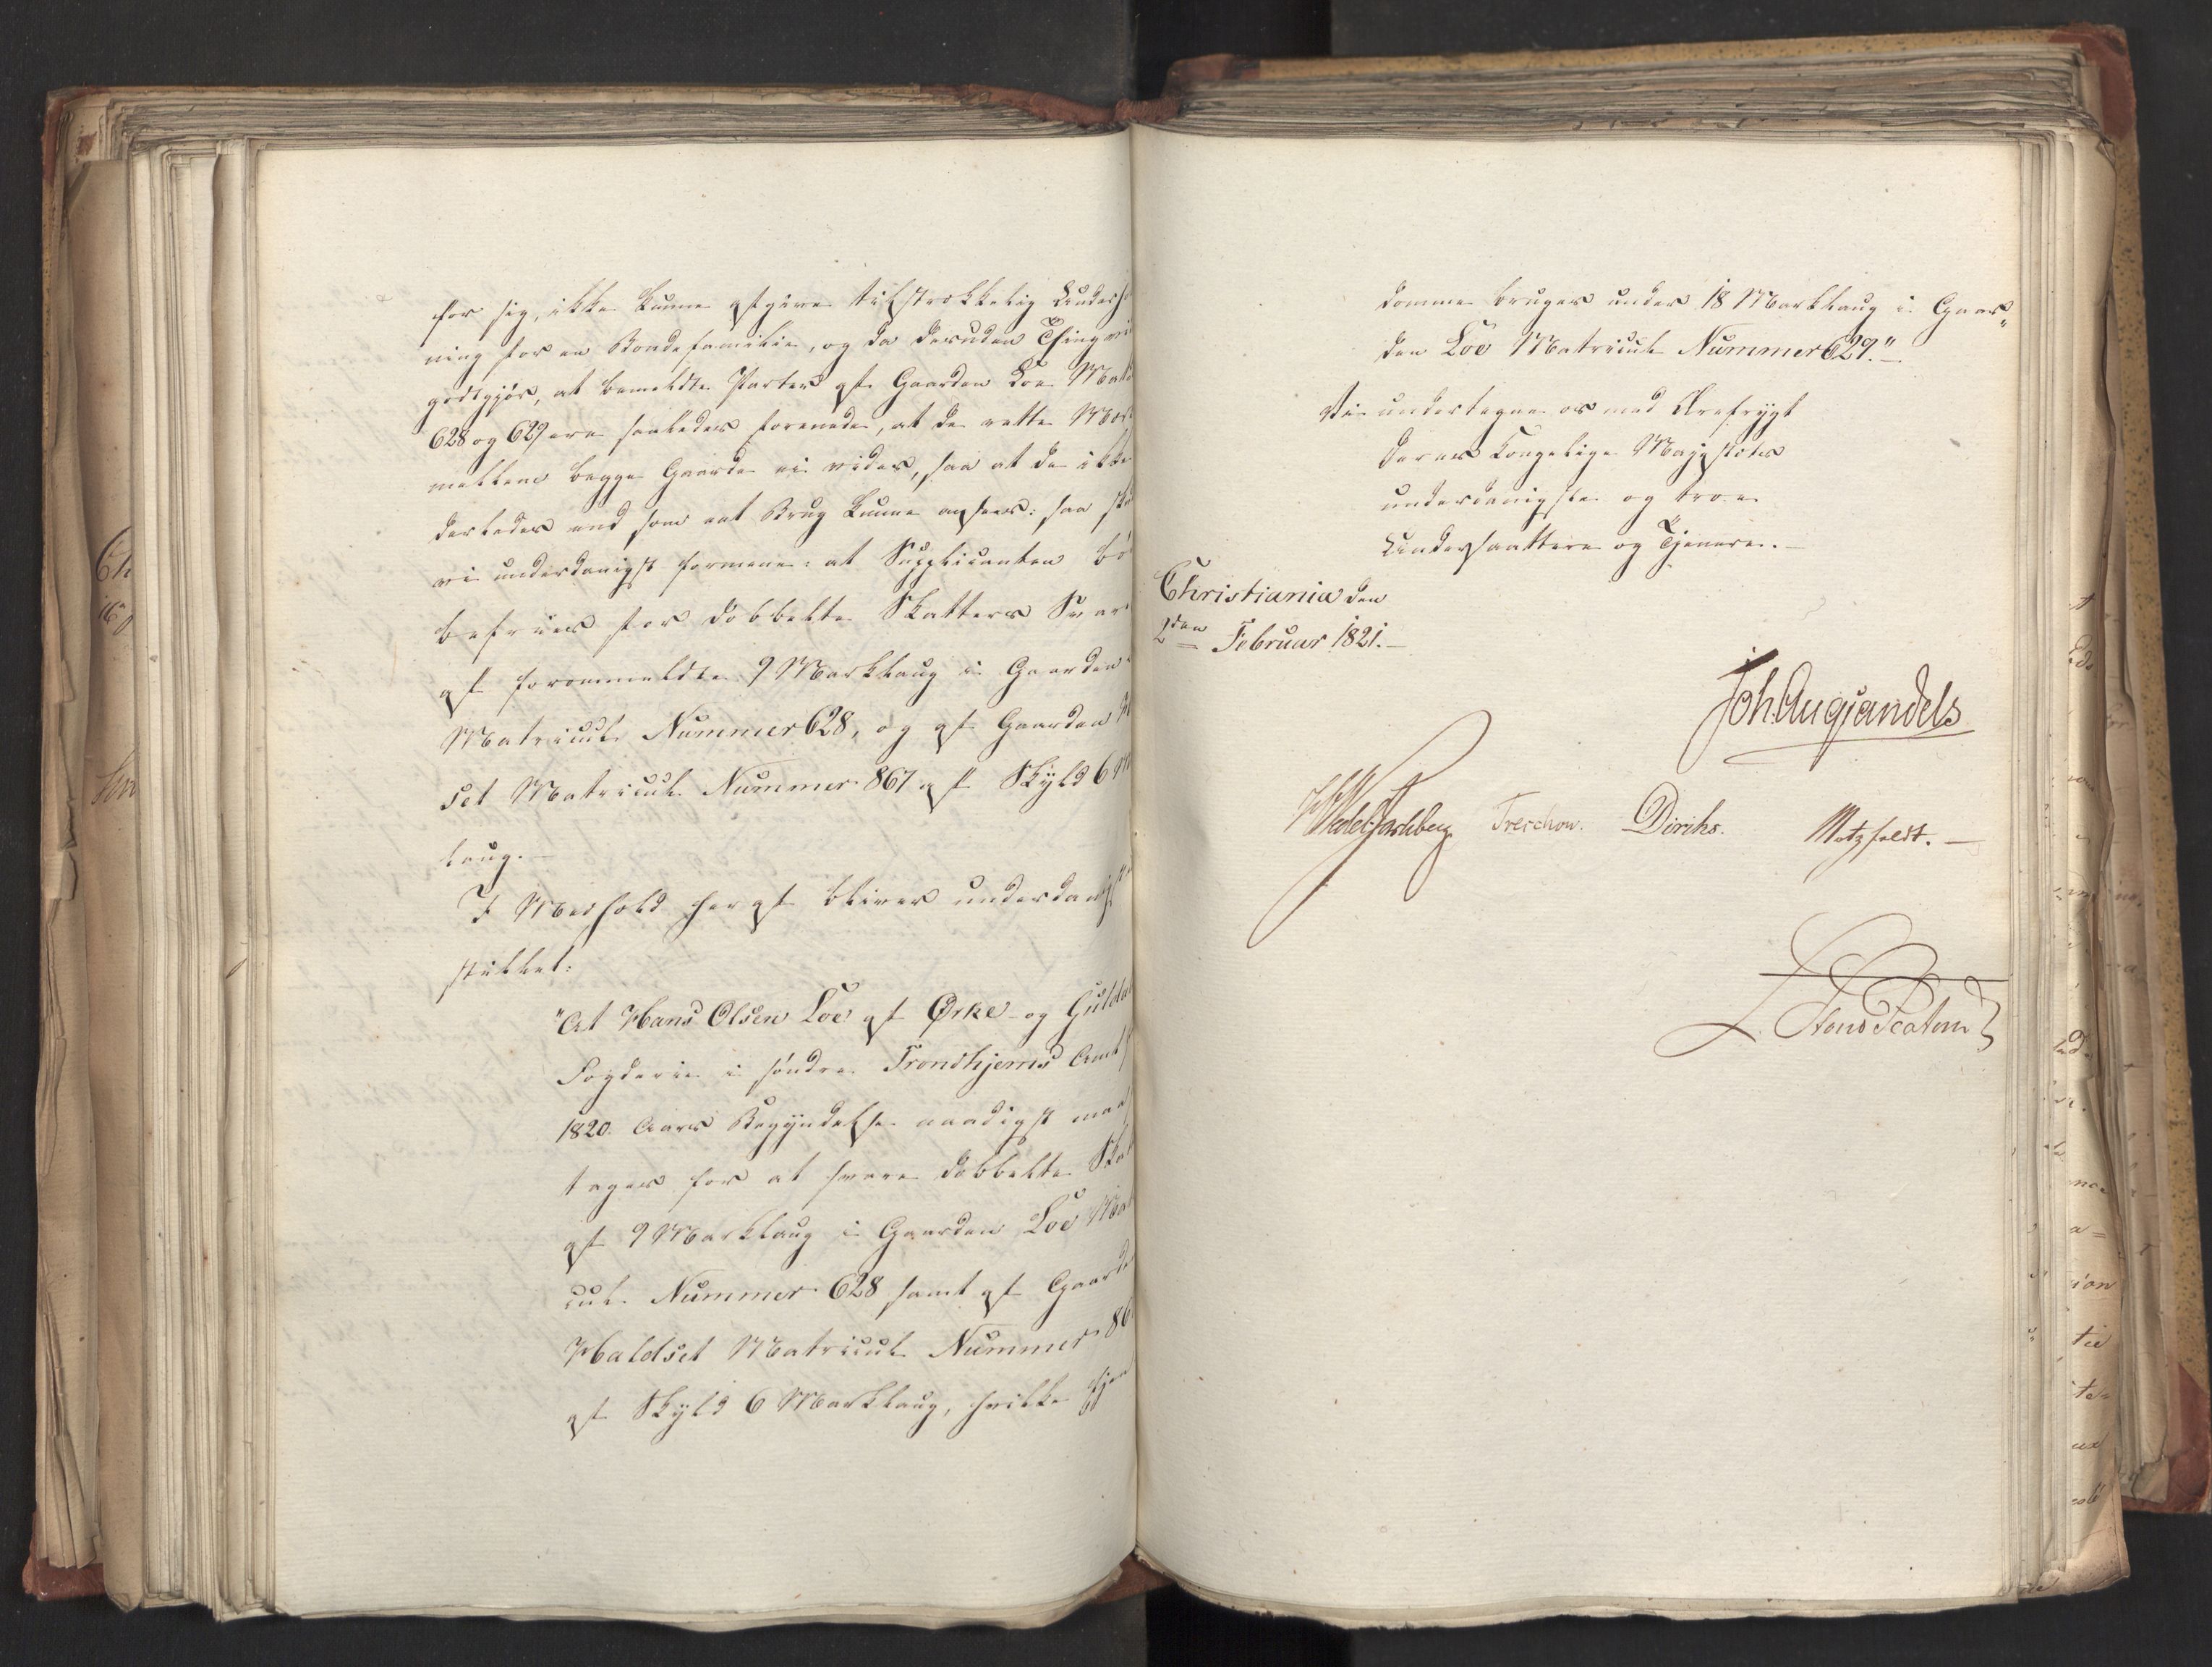 for sig, ikke kunne afgive tilstrækkelig Underhold
ning for en Bondefamilie, og da desuden Thingvid
godtgjør, at bemeldte Parter af Gaarden Loe Matr
628 og 629 ere saaledes forenede, at de rette Mær
mellem begge Gaarde ei vides, saa at de ikke
derledes end som eet Brug kunne ansees: saa sk
vi underdanigst formene: at Supplicanten bø
befries for dobbelte Skatters Svar
af forommeldte 9 Marklaug i Gaarden
Matricul Nummer 628, og af Gaarden H
set Matricul Nummer 867 af Skyld 6 M
laug.—
I Medhold heraf bliver underdanigst
stillet:
"At Hans Olsen Loe af Ørke- og Guldal
Fogderie i søndre Trondhjems Amt f
1820 Aars Begyndelse naadigst maa
tages for at svare dobbelte Skat
af 9 Marklaug i Gaarden Loe Mat
cul Nummer 628 samt af Gaarde
Haldset Matricul Nummer 86
af Skyld 6 Marklaug, hvilke Ejen
domme bruges under 18 Marklaug i Gaar„
den Loe Matricul Nummer 629."—
Vi undertegne os med Ærefrygt
Deres Kongelige Majestæts
underdanigste og troe
Undersaattere og Tjenere.—
Christiania den
2den Februar 1821.—
Joh. Aug Sandels
HWedel Jarlsberg Treschow. Diriks. Motzfeldt.—